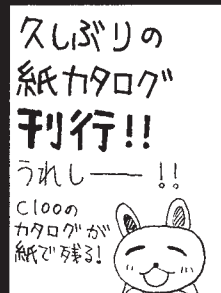 久しぶりの
紙カタログ
刊行!!
うれしー!!
C100の
カタログが
紙で残る!